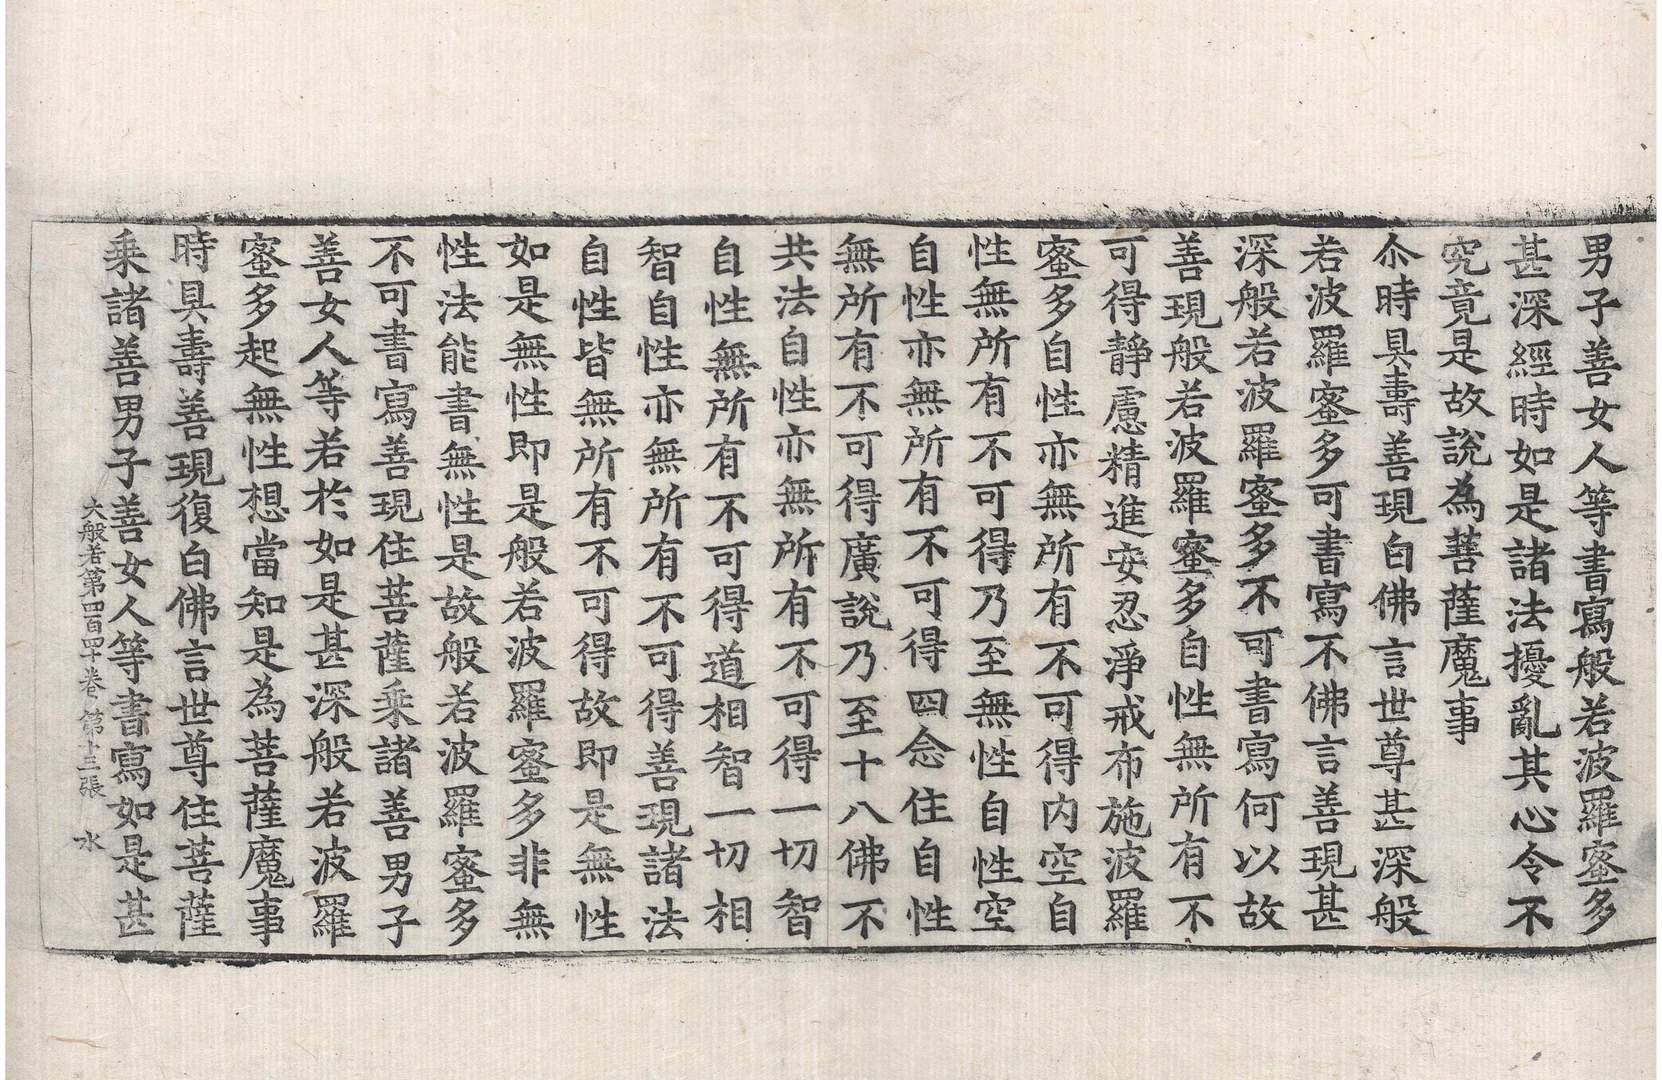 男子善女人等書寫般若波羅蜜多
甚深經時如是諸法擾亂其心令不
究竟是故說為菩薩魔事
尒時具壽善現白佛言世尊甚深般
若波羅蜜多可書寫不佛言善現甚
深般若波羅蜜多不可書寫何以故
善現般若波羅蜜多自性無所有不
可得靜慮精進安忍淨戒布施波羅
蜜多自性亦無所有不可得內空自
性無所有不可得乃至無性自性空
自性亦無所有不可得四念住自性
無所有不可得廣說乃至十八佛不
共法自性亦無所有不可得一切智
自性無所有不可得道相智一切相
智自性亦無所有不可得善現諸法
自性皆無所有不可得故即是無性
如是無性即是般若波羅蜜多非無
性法能書無性是故般若波羅蜜多
不可書寫善現住菩薩乘諸善男子
善女人等若於如是甚深般若波羅
蜜多起無性想當知是為菩薩魔事
時具壽善現復白佛言世尊住菩薩
乘諸善男子善女人等書寫如是甚
大般若第四百四十卷 第十三張 水